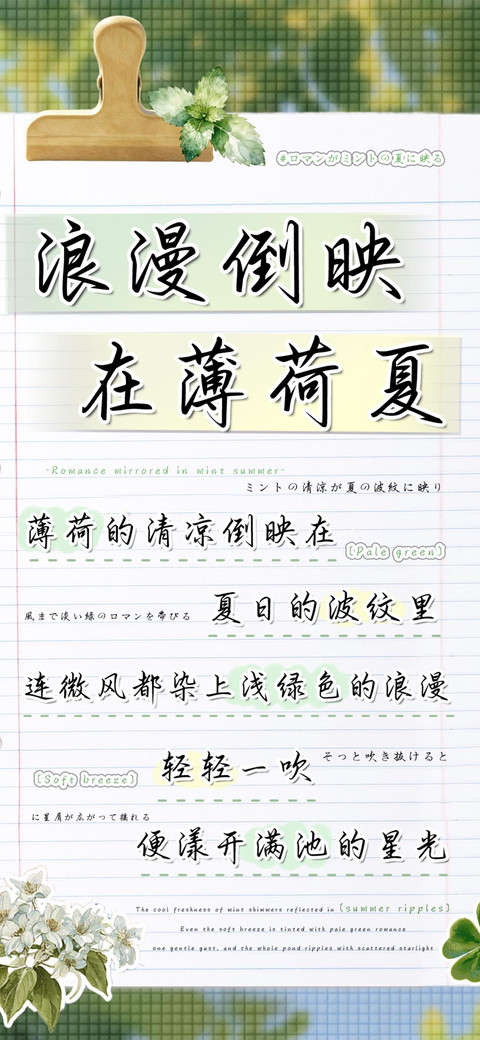 #ロマンがミントの夏に映る
浪漫倒映
在薄荷夏
-Romance mirrored in mint summer-
ミントの清涼が夏の波紋に映り
薄荷的清凉倒映在
[Pale green]
夏日的波纹里
風まで淡い緑のロマンを帯びる
连微风都染上浅绿色的浪漫
轻轻一吹
そっと吹き抜けると
[Soft breeze]
に星屑が広がって揺れる
便漾开满池的星光
The cool freshness of mint shimmers reflected in [summer ripples]
Even the soft breeze is tinted with pale green romance
one gentle gust, and the whole pond ripples with scattered starlight